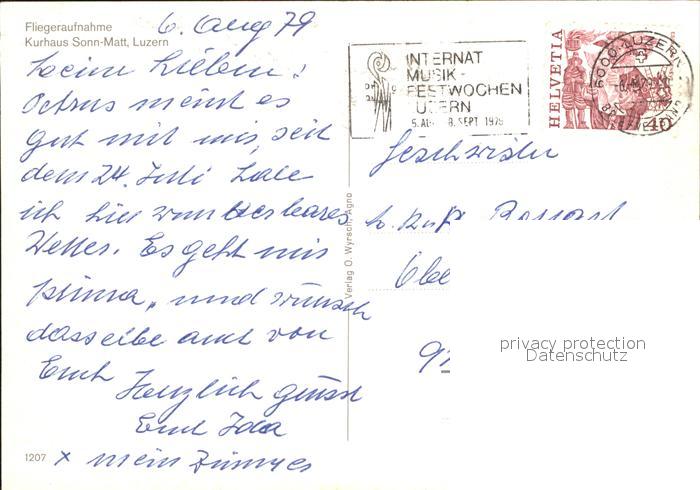 Fliegeraufnahme
Kurhaus Sonn-Matt, Luzern
6. Aug 79
Meine Lieben!
Petrus meint es
gut mit mir, seit
dem 24. Juli habe
ich hier wunderbares
Wetter. Es geht mir
prima, und wünsch
dasselbe auch von
Euch
Herzlich grüsst
Euch Ida
1207 x mein Zimmer
Verlag O. Wyrsch, Agno
INTERNAT
MUSIK-
FESTWOCHEN
LUZERN
5. AU 8. SEPT. 1979
HELVETIA
40
6000 LUZERN
Geschwister
Obe
privacy protection
Datenschutz